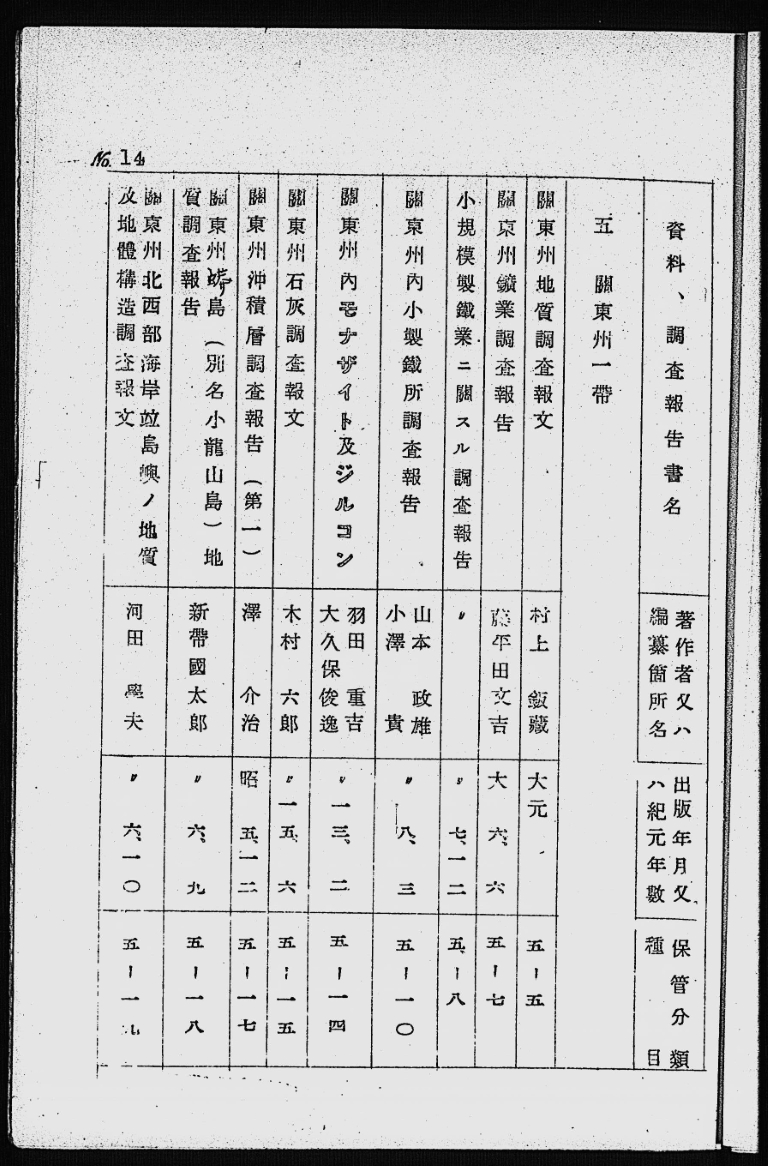 No. 14
資料、調査報告書名
著作者又ハ
編纂箇所名
出版年月又
ハ紀元年數
保管分類
種目
五 關東州一帶
關東州地質調査報文
村上鈑藏
大元
五－五
關東州鑛業調査報告
藤平田文吉
大六、六
五－七
小規模製鐵業ニ關スル調査報告
〃
〃七、一二
五－八
關東州内小製鐵所調査報告
山本政雄
小澤貴
〃八、三
五－一〇
關東州内モナザイト及ジルコン
羽田重吉
大久保俊逸
〃一三、二
五－一四
關東州石灰調査報文
木村六郎
〃一五、六
五－一五
關東州沖積層調査報告（第一）
澤介治
昭五、一二
五－一七
關東州蠎島（別名小龍山島）地
質調査報告
新帶國太郎
〃六、九
五－一八
關東州北西部海岸竝島嶼ノ地質
及地體構造調査報文
河田學夫
〃六、一〇
五－一